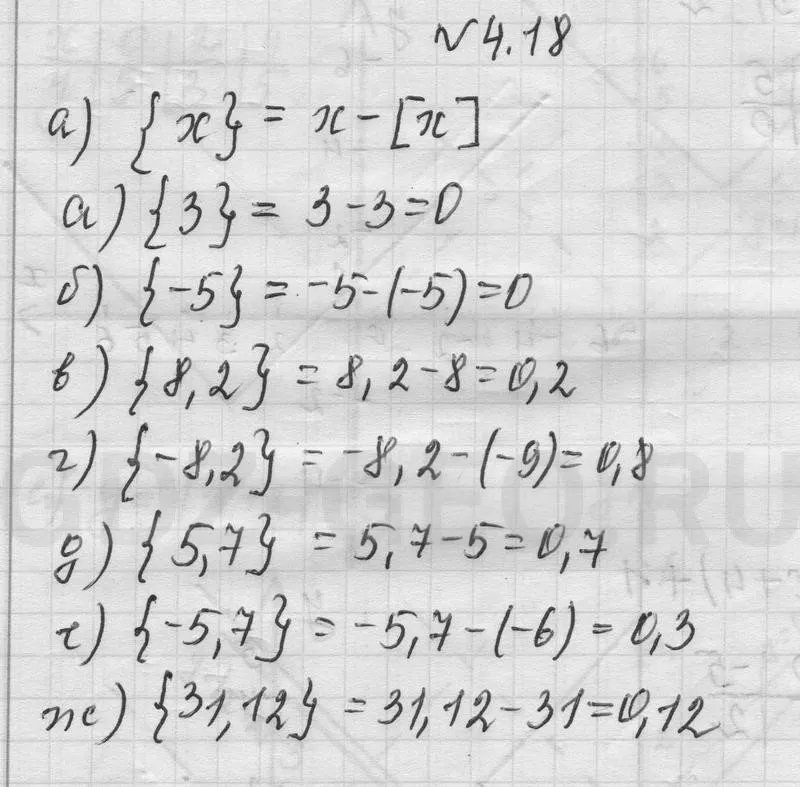 № 4.18
а) {x} = x - [x]
а) {3} = 3 - 3 = 0
б) {-5} = -5 - (-5) = 0
в) {8,2} = 8,2 - 8 = 0,2
г) {-8,2} = -8,2 - (-9) = 0,8
д) {5,7} = 5,7 - 5 = 0,7
е) {-5,7} = -5,7 - (-6) = 0,3
ж) {31,12} = 31,12 - 31 = 0,12